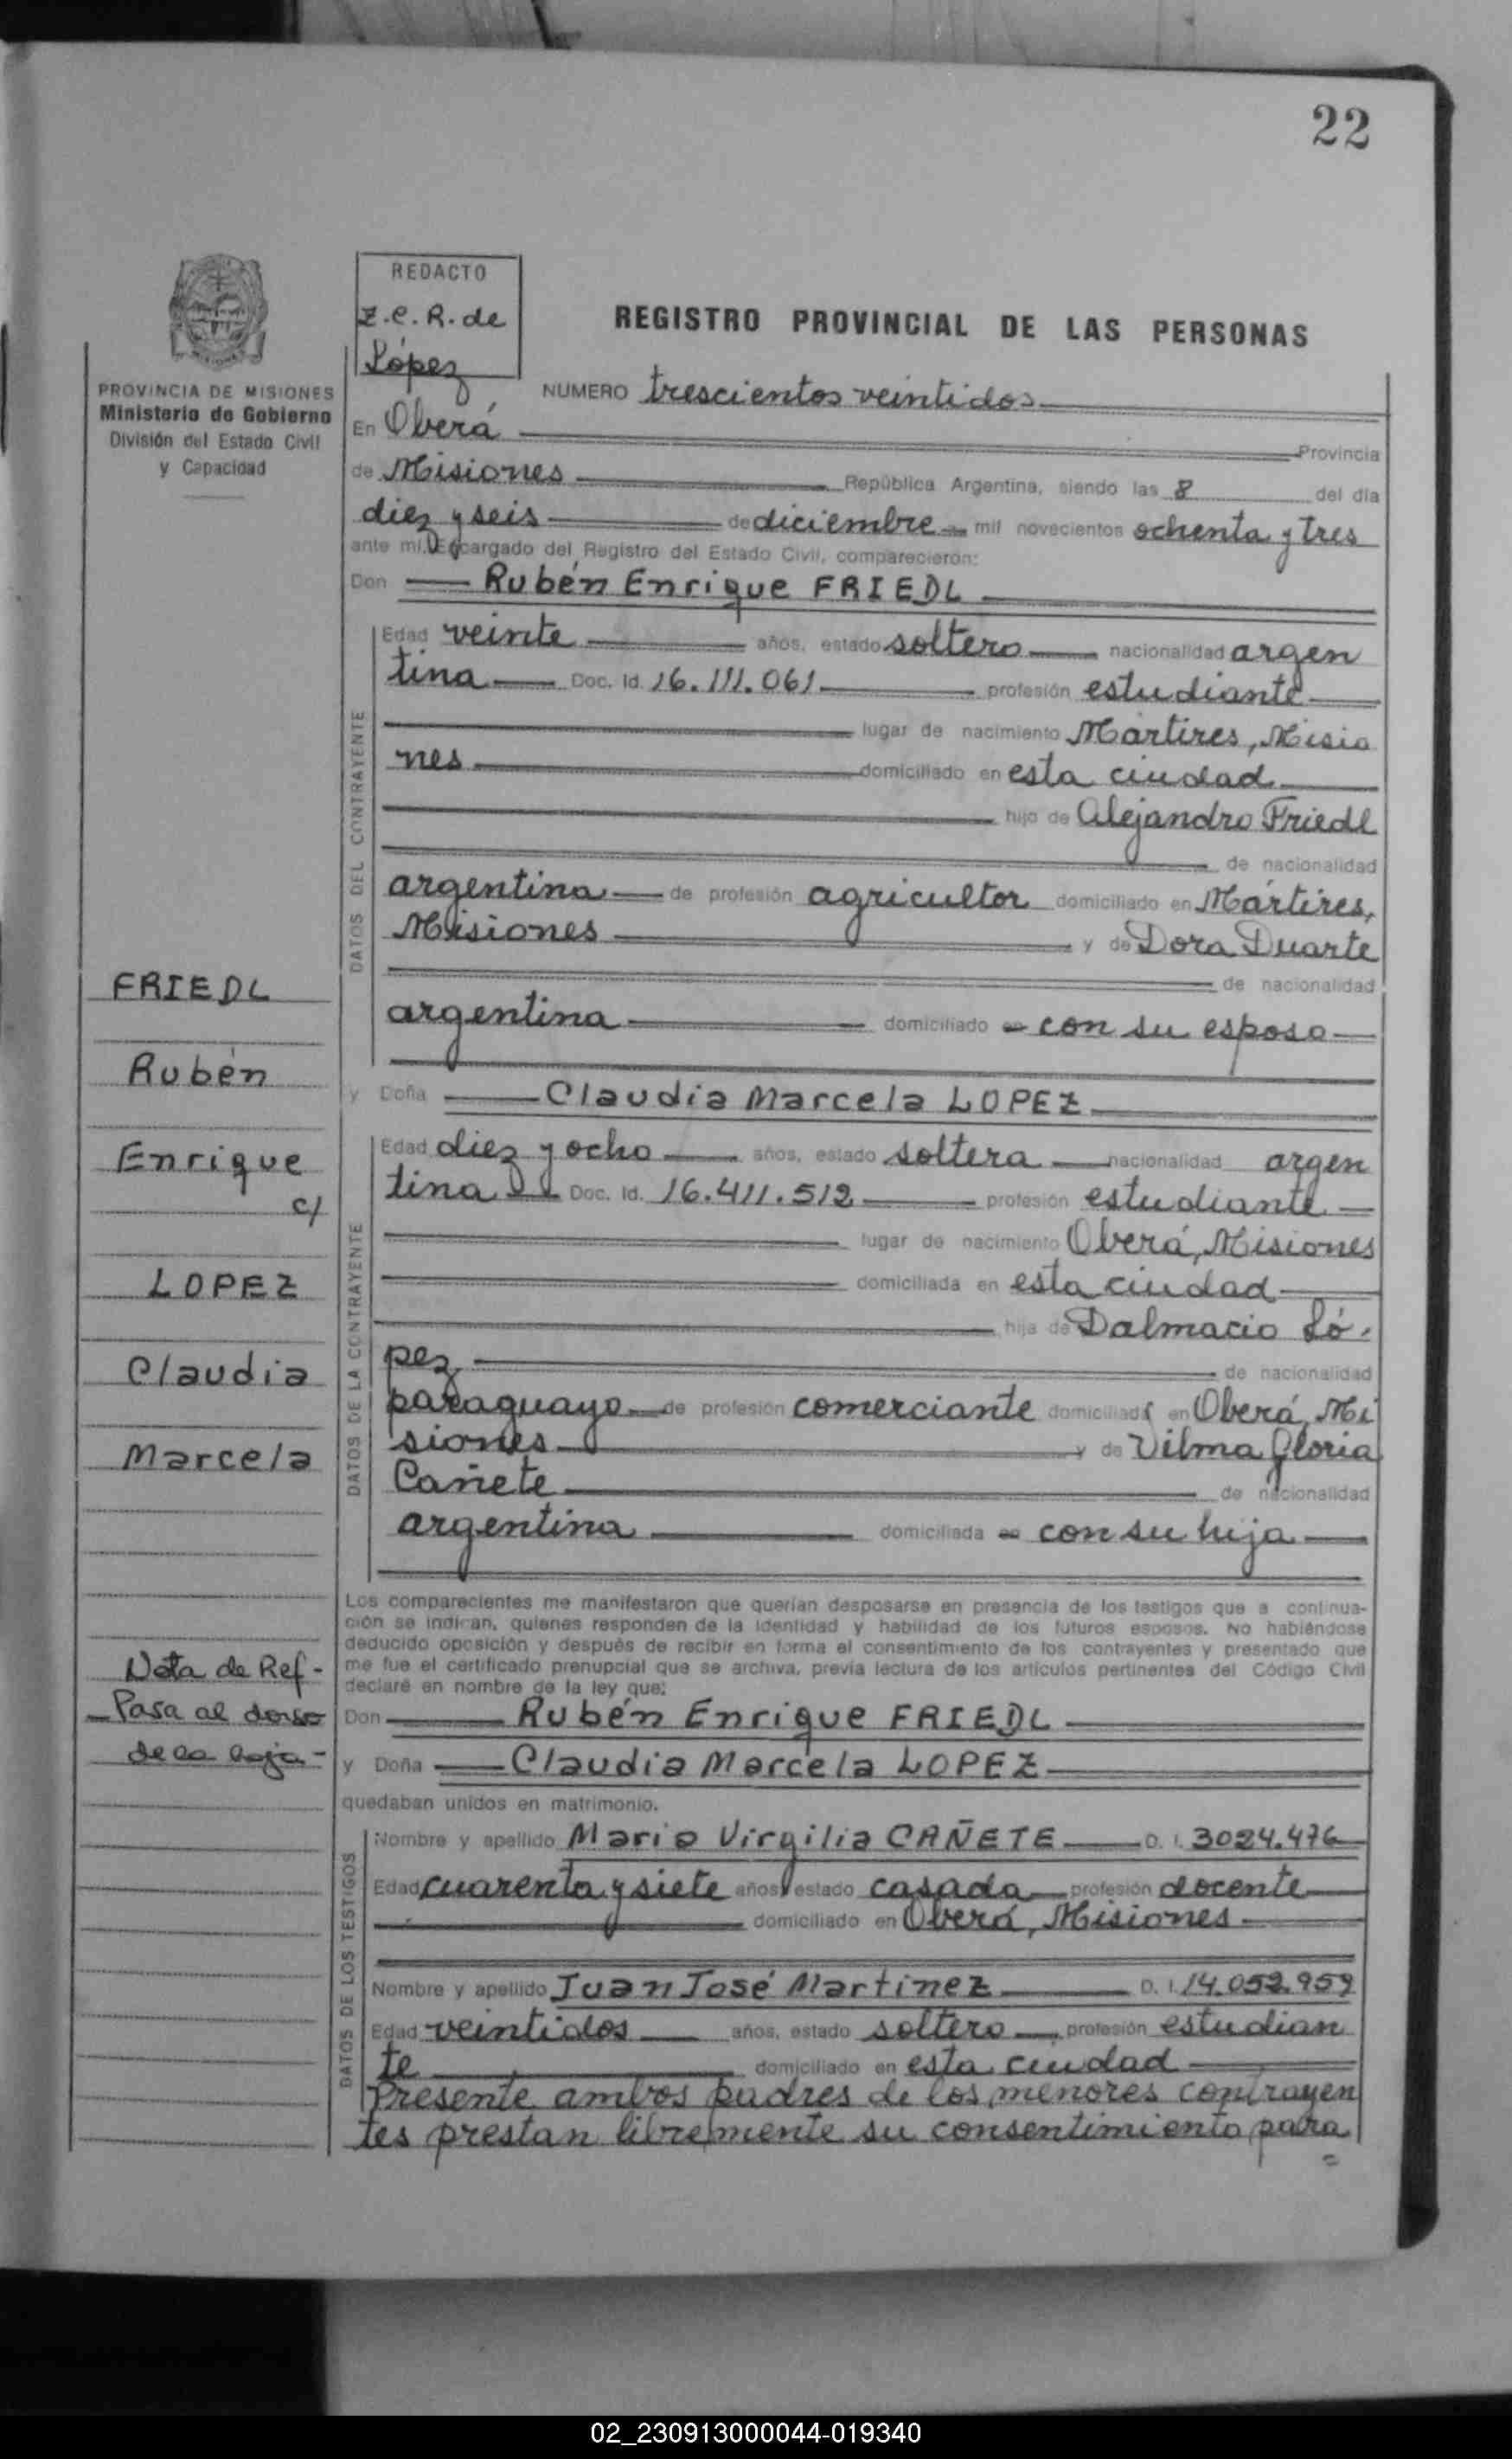 22
REDACTO
Z.C.R. de
López
REGISTRO PROVINCIAL DE LAS PERSONAS
PROVINCIA DE MISIONES
Ministerio de Gobierno
División del Estado Civil
y Capacidad
NUMERO trescientos veintidos
En Oberá Provincia
de Misiones República Argentina, siendo las 8 del día
diez y seis de diciembre mil novecientos ochenta y tres
ante mí, Encargado del Registro del Estado Civil, comparecieron:
Don Rubén Enrique FRIEDL
DATOS DEL CONTRAYENTE
Edad veinte años, estado soltero nacionalidad argen
tina Doc. Id. 16.111.061 profesión estudiante
lugar de nacimiento Mártires, Misio
nes domiciliado en esta ciudad
hijo de Alejandro Friedl
de nacionalidad
argentina de profesión agricultor domiciliado en Mártires,
Misiones y de Dora Duarte
de nacionalidad
argentina domiciliado en con su esposo
y Doña Claudia Marcela LOPEZ
DATOS DE LA CONTRAYENTE
Edad diez y ocho años, estado soltera nacionalidad argen
tina Doc. Id. 16.411.512 profesión estudiante
lugar de nacimiento Oberá, Misiones
domiciliada en esta ciudad
hija de Dalmacio Ló-
pez de nacionalidad
paraguayo de profesión comerciante domiciliado en Oberá, Mi
siones y de Vilma Gloria
Cañete de nacionalidad
argentina domiciliada en con su hija
Los comparecientes me manifestaron que querían desposarse en presencia de los testigos que a continua-
ción se indican, quienes responden de la identidad y habilidad de los futuros esposos. No habiéndose
deducido oposición y después de recibir en forma el consentimiento de los contrayentes y presentado que
me fue el certificado prenupcial que se archiva, previa lectura de los artículos pertinentes del Código Civil
declaré en nombre de la ley que:
Don Rubén Enrique FRIEDL
y Doña Claudia Marcela LOPEZ
quedaban unidos en matrimonio.
DATOS DE LOS TESTIGOS
Nombre y apellido Maria Virgilia CAÑETE D. I. 3024.476
Edad cuarenta y siete años estado casada profesión docente
domiciliado en Oberá, Misiones
Nombre y apellido Juan José Martinez D. I. 14.052.959
Edad veintidos años, estado soltero profesión estudian
te domiciliado en esta ciudad
Presente ambos padres de los menores contrayen
tes prestan libremente su consentimiento para
FRIEDL
Rubén
Enrique
c/
LOPEZ
Claudia
Marcela
Nota de Ref-
Pasa al dorso
de la hoja-
02_230913000044-019340